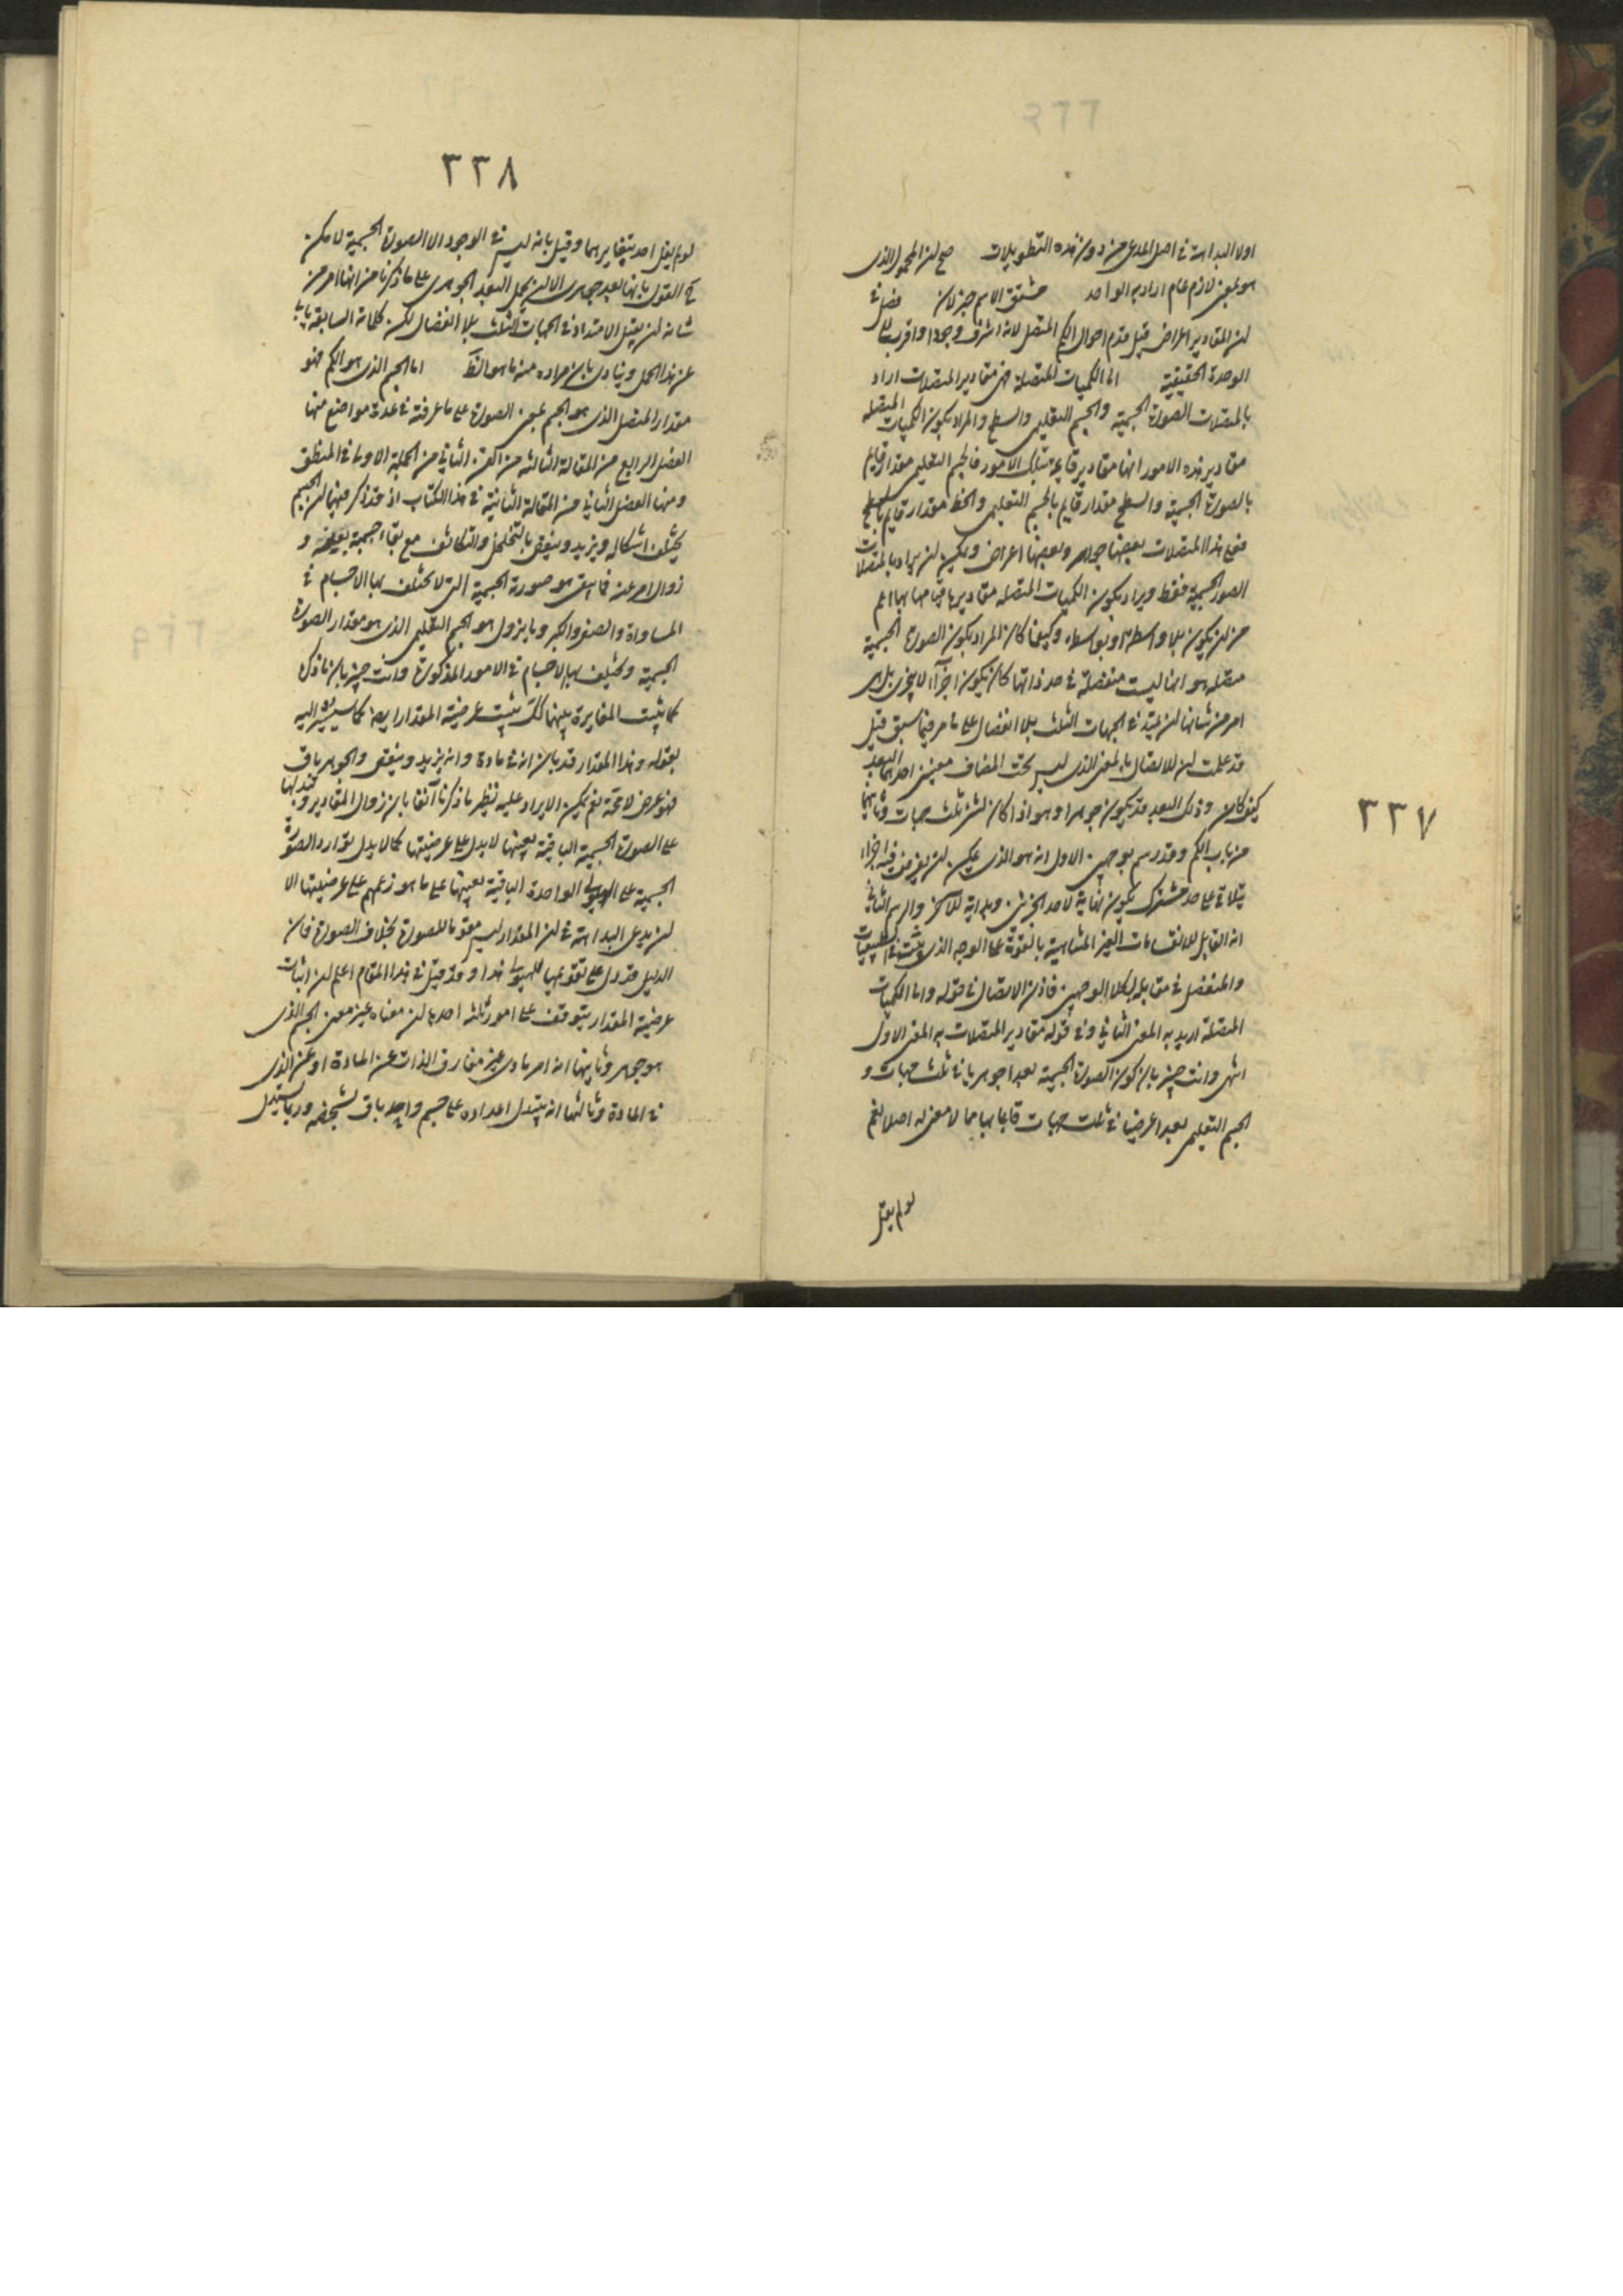 ٣٣٧
اولا البداهة فى اصل المدعى من دون هذه التطويلات صح ان المحمول الذى
هو بمعنى لازم عام اراد به الواحد مشتق الاسم خبر لان فصل فى
ان المقادير اعراض قيل قدم احوال الكم المتصل لانه اشرف وجودا واقرب الى
الوحدة الحقيقية اما الكميات المتصلة فهى مقادير المتصلات اراد
بالمتصلات الصورة الجسمية والجسم التعليمى والسطح والمراد بكون الكميات المتصلة
مقادير هذه الامور انها مقادير قائمة بتلك الامور فالجسم التعليمى مقدار قايم
بالصورة الجسمية والسطح مقدار قايم بالجسم التعليمى والخط مقدار قايم بالسطح
فعلى هذا المتصلات بعضها جواهر وبعضها اعراض ويمكن ان يراد بالمتصلات
الصور الجسمية فقط ويراد بكون الكميات المتصلة مقاديرها قيامها بها اعم
من ان يكون بلا واسطة او بواسطة وكيفما كان المراد بكون الصورة الجسمية
متصلة هو انها ليست منفصلة فى حد ذاتها كان يكون اجزآء لا يتجزى بل هى
امر من شانها ان يمتد فى الجهات الثلث بلا انفصال على ما مر فيما سبق قيل
قد علمت ان للاتصال بالمعنى الذى ليس تحت المضاف معنيين احدهما البعد
كيف كان وذلك البعد قد يكون جوهرا وهو اذا كان لشئ ثلث جهات وثانيهما
من باب الكم وقد رسم بوجهين الاول انه هو الذى يمكن ان يفرض فيه اجزاء
يتلاقى على حد مشترك يكون نهاية لاحد الجزئين وبداية للآخر والرسم الثانى
انه القابل للانقسامات الغير المتناهية بالقوة على الوجه الذى يثبت فى الطبيعيات
والمنفصل فى مقابله بكلا الوجهين فاذن الاتصال فى قوله واما الكميات
المتصلة اريد به المعنى الثانى وفى قوله مقادير المتصلات به المعنى الاول
انتهى وانت خبير بان كون الصورة الجسمية بعدا جوهريا فى ثلث جهات و
الجسم التعليمى بعدا عرضيا فى ثلث جهات قائما بها مما لا معنى له اصلا نعم
لو لم يقل
٣٣٨
لو لم يقل احد بتغايرهما وقيل بانه ليس فى الوجود الا الصورة الجسمية لامكن
القول بانها بعد جوهرى الا ان يحمل البعد الجوهرى على ما ذكرنا من انها امر من
شانه ان يقبل الامتداد فى الجهات الثلث بلا انفصال لكن كلماته السابقة يابى
عن هذا الحمل وينادى بان مراده منه ما هو الظ اما الجسم الذى هو الكم فهو
مقدار المتصل الذى هو الجسم بمعنى الصورة على ما عرفته فى عدة مواضع منها
الفصل الرابع من المقالة الثالثة من الفن الثانى من الجملة الاولى فى المنطق
ومنها الفصل الثانى من المقالة الثانية فى هذا الكتاب اذ قد ذكر فيهما ان الجسم
يختلف اشكاله ويزيد وينقص بالتخلخل والتكاثف مع بقاء جسمية بعينه و
زوال امر عنه فما بقى هو صورة الجسمية التى لا تختلف بها الاجسام فى
المساواة والصغر والكبر وما يزول هو الجسم التعليمى الذى هو مقدار الصورة
الجسمية ويختلف بها الاجسام فى الامور المذكورة وانت خبير بان ما ذكره
كما يثبت المغايرة بينهما كك يثبت عرضية المقدار ايضا كما سيشير اليه
بقوله وهذا المقدار قد بان انه فى مادة وانه يزيد وينقص والجوهر باق
فهو عرض لا محة نعم يمكن الايراد عليه بنظير ما ذكرنا آنفا بان زوال المقادير وتبدلها
على الصورة الجسمية الباقية بعينها لا يدل على عرضيتها كما لا يدل توارد الصورة
الجسمية على الهيولى الواحدة الباقية بعينها على ما هو زعمهم على عرضيتها الا
ان يدعى البداهة فى ان المقدار ليس مقوما للصورة بخلاف الصورة فان
الدليل قد دل على تقويمها للهيولى هذا وقد قيل فى هذا المقام اعلم ان اثبات
عرضية المقدار يتوقف على امور ثلثة احدها ان معناه غير معنى الجسم الذى
هو جوهر وثانيها انه امر مادى غير مفارق الذات عن المادة او عن الذى
فى المادة وثالثها انه يتبدل اعداده على جسم واحد باق بشخصه وربما يستدل